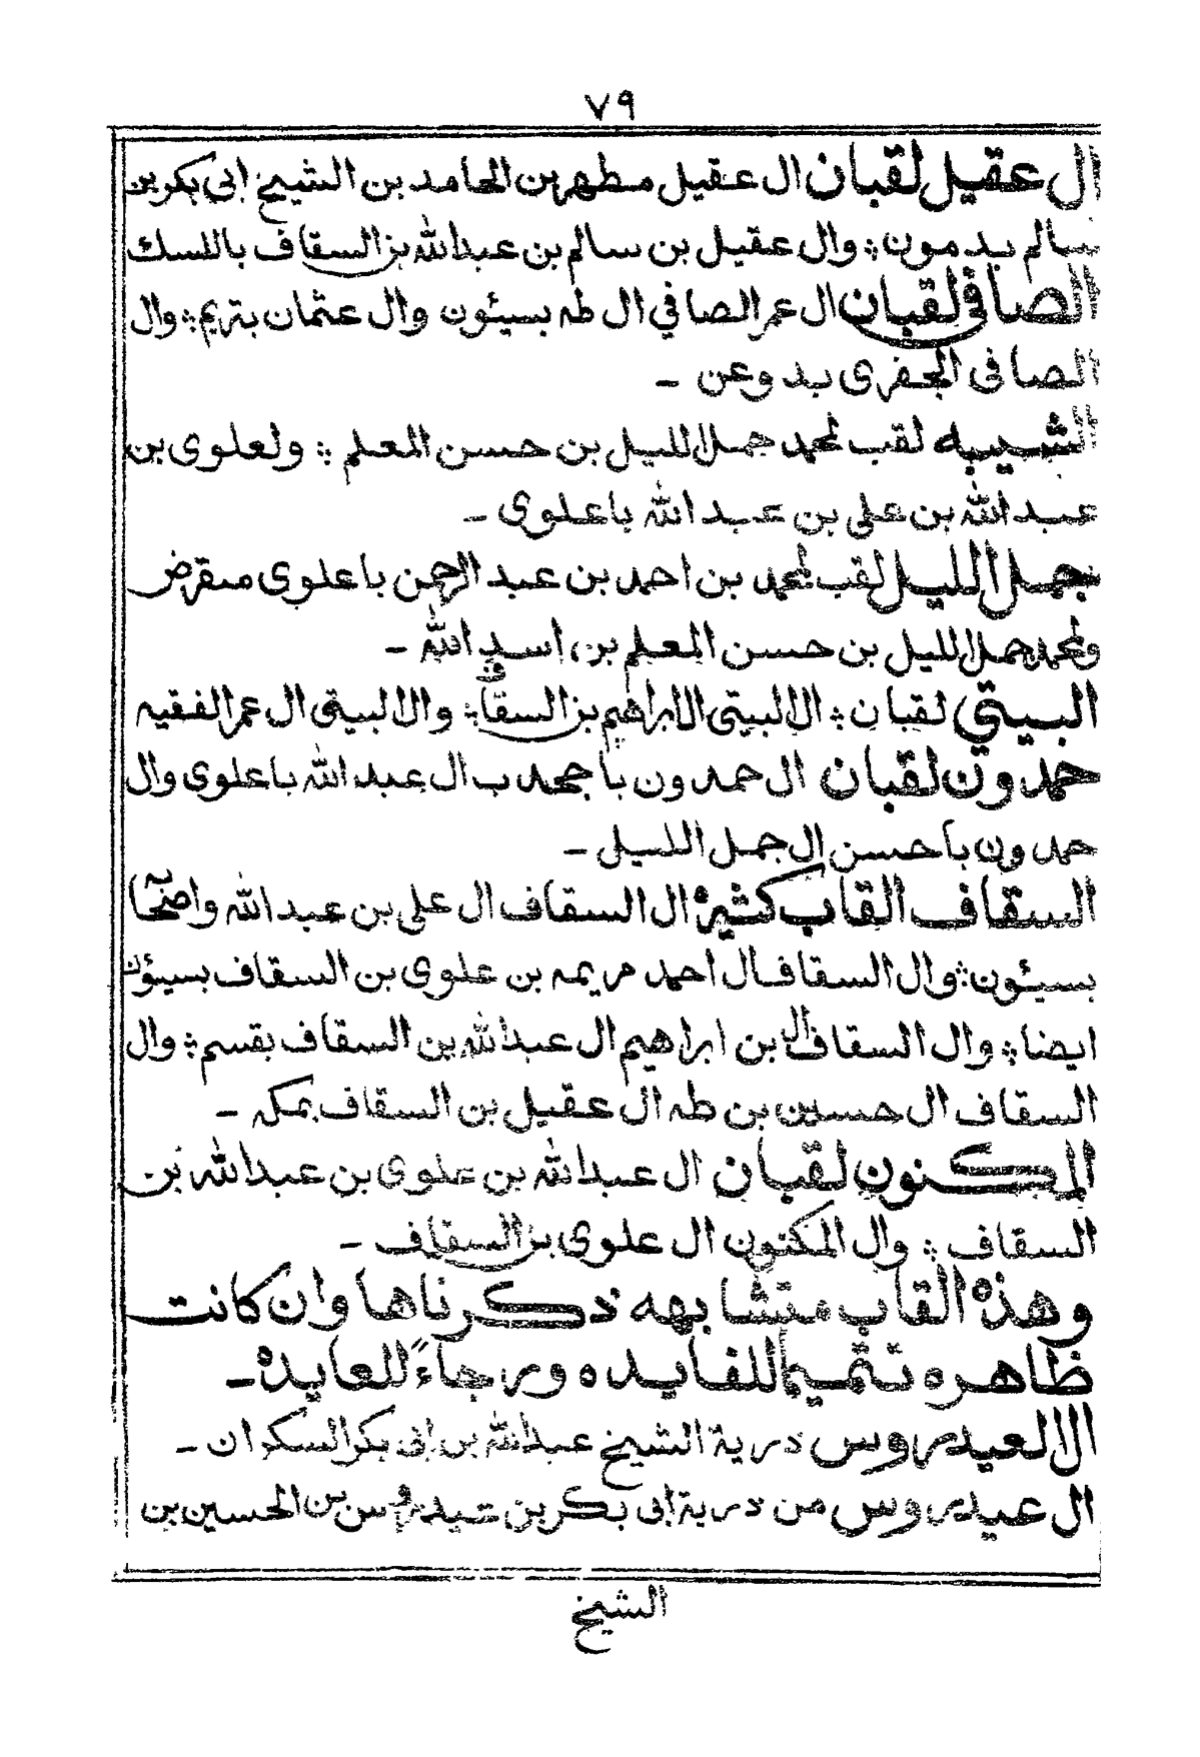 ٧٩
ال عقيل لقبان ال عقيل مطهر بن الحامد بن الشيخ ابى بكر بن
سالم بدمون ؞ وال عقيل بن سالم بن عبدالله بن السقاف باللسك
الصافى لقبان ال عمر الصافي ال طه بسيئون وال عثمان بتريم ؞ وال
الصافى الجفرى بدوعن -
الشيبه لقب لمحمد جمل الليل بن حسن المعلم ؞ ولعلوى بن
عبد الله بن على بن عبد الله باعلوى -
جمل الليل لقب لمحمد بن احمد بن عبد الرحمن باعلوى منقرض
ولمحمد جمل الليل بن حسن المعلم بن اسد الله -
البيتي لقبان ؞ ال البيتى ال ابراهيم بن السقاف ؞ وال البيتى ال عمر الفقيه
حمدون لقبان ال حمدون باجحدب ال عبد الله باعلوى وال
حمدون باحسن ال جمل الليل -
السقاف القاب كثيره ال السقاف ال على بن عبد الله
بسيئون ؞ وال السقاف ال احمد مريمه بن علوى بن السقاف بسيؤن
ايضا ؞ وال السقاف ال بن ابراهيم ال عبدالله بن السقاف بقسم ؞ وال
السقاف ال حسين بن طه ال عقيل بن السقاف بمكه -
المكنون لقبان ال عبدالله بن علوى بن عبدالله بن
السقاف ؞ وال المكنون ال علوى بن السقاف -
وهذه القاب متشابهه ذكرناها وان كانت
ظاهره تتميما للفايده ورجاءً للعايده -
ال العيدروس درية الشيخ عبدالله بن ابى بكر السكران -
ال عيدروس من درية ابى بكر بن عيدروس بن الحسين بن
الشيخ